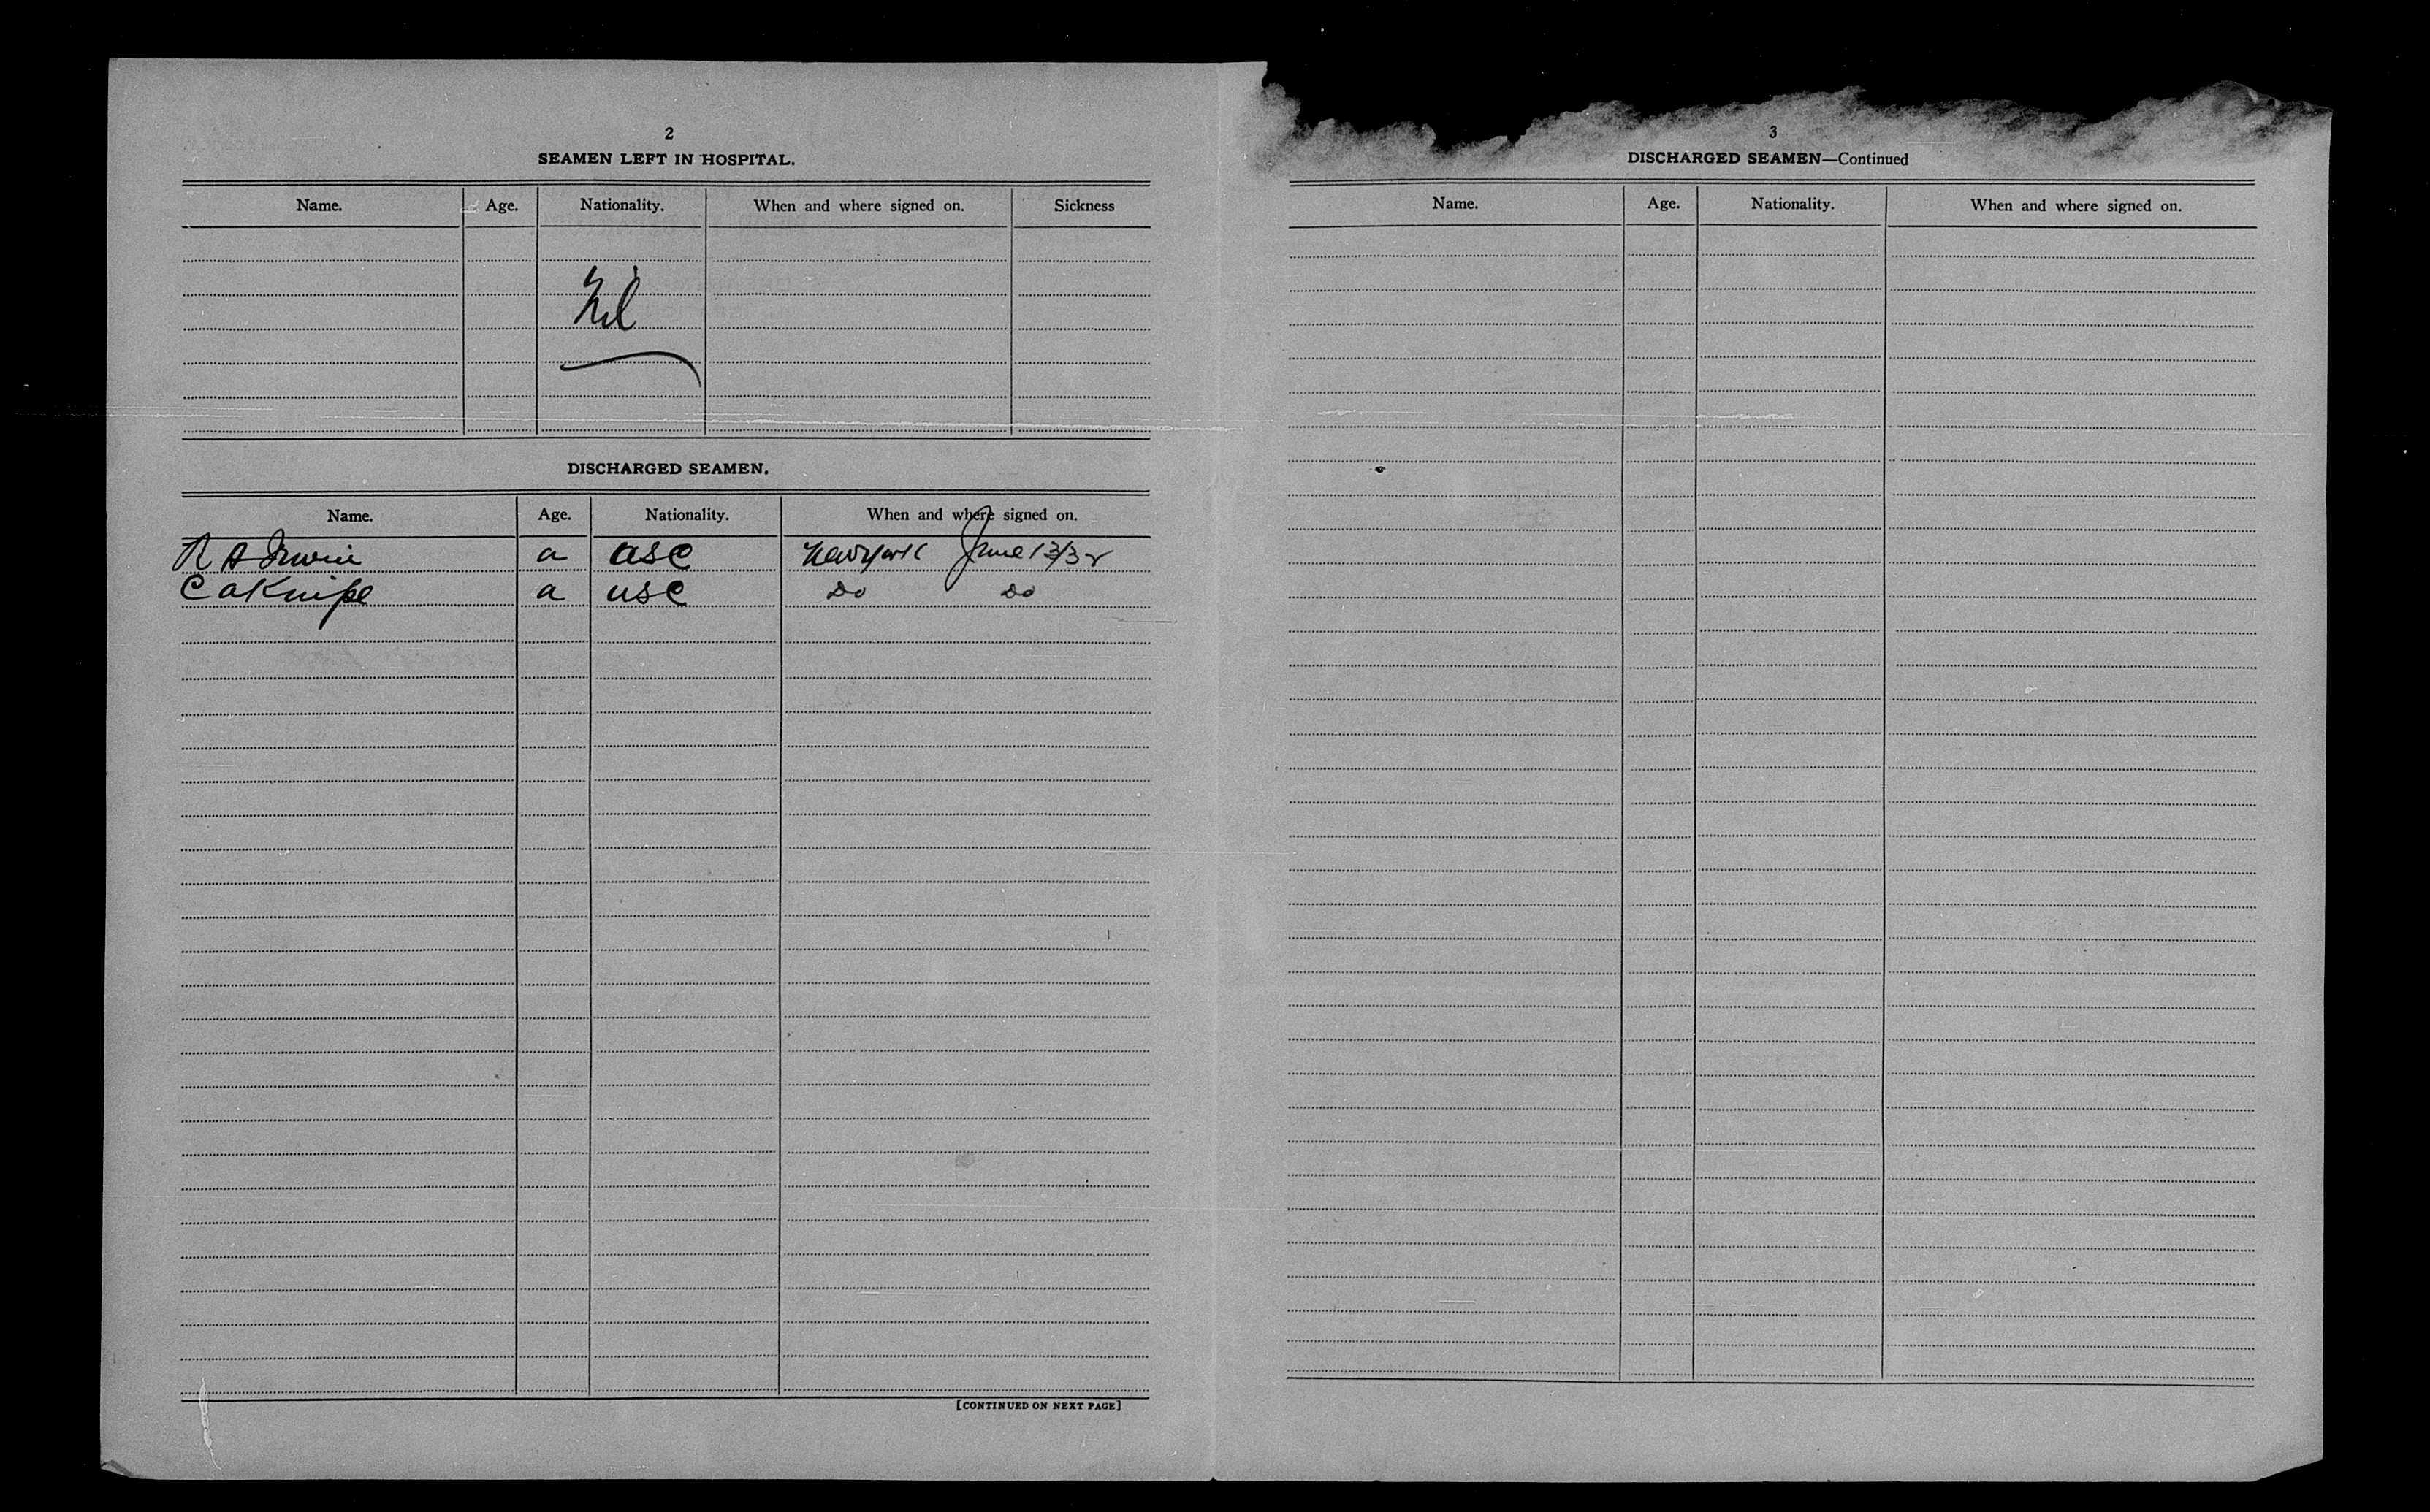 2
SEAMEN LEFT IN HOSPITAL.
Name. Age. Nationality. When and where signed on. Sickness
Nil
DISCHARGED SEAMEN.
Name. Age. Nationality. When and where signed on.
R A Irwin a usc New York June 13/32
C A Knipe a usc Do Do
[CONTINUED ON NEXT PAGE]
3
DISCHARGED SEAMEN—Continued
Name. Age. Nationality. When and where signed on.